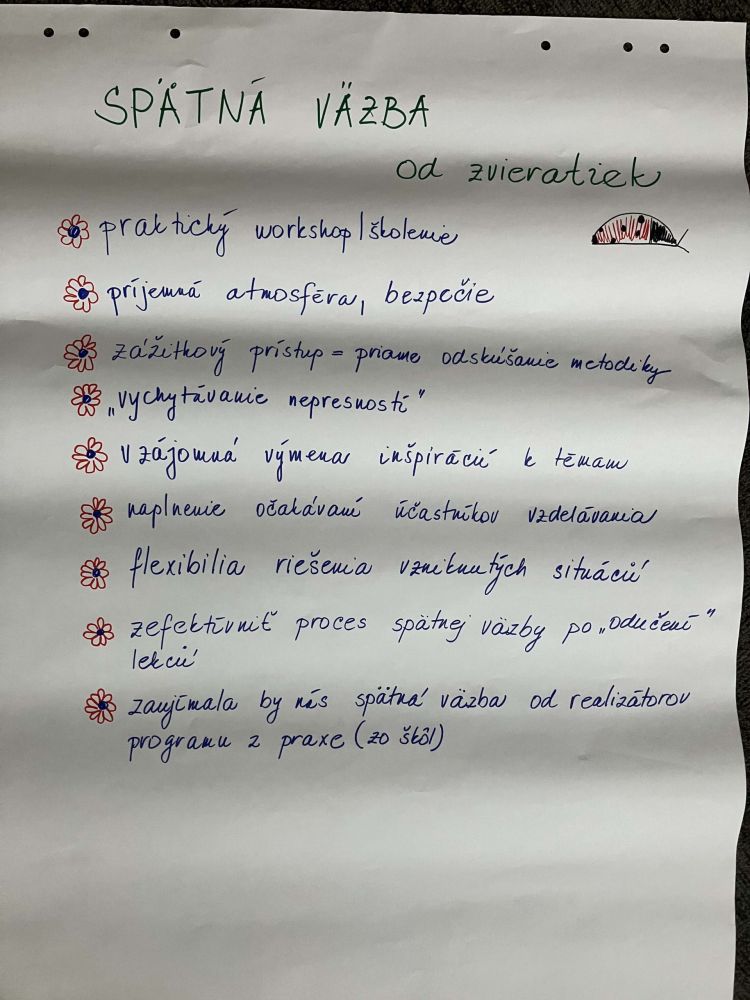 SPÄTNÁ VÄZBA
od zvieratiek
praktický workshop/školenie
príjemná atmosféra, bezpečie
zážitkový prístup = priame odskúšanie metodiky
„vychytávanie nepresností"
vzájomná výmena inšpirácií k témam
naplnenie očakávaní účastníkov vzdelávania
flexibilia riešenia vzniknutých situácií
zefektívniť proces spätnej väzby po „odučení"
lekcií
zaujímala by nás spätná väzba od realizátorov
programu z praxe (zo škôl)